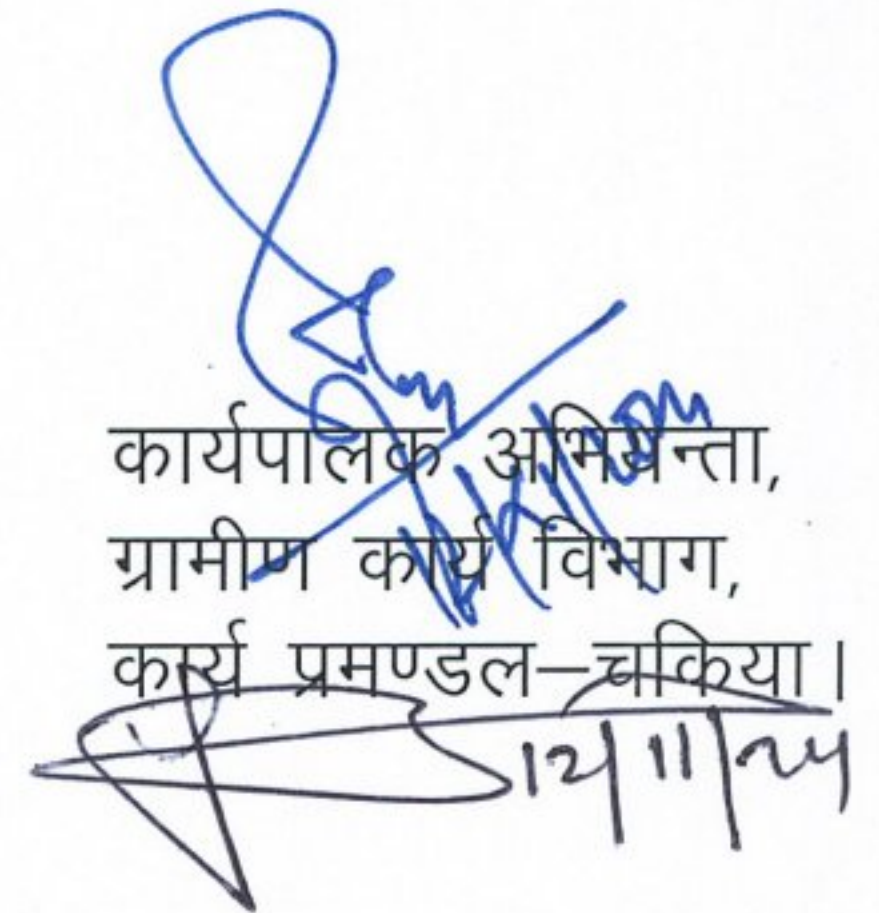 कार्यपालक अभियन्ता,
ग्रामीण कार्य विभाग,
कार्य प्रमण्डल–चकिया।
12/11/24